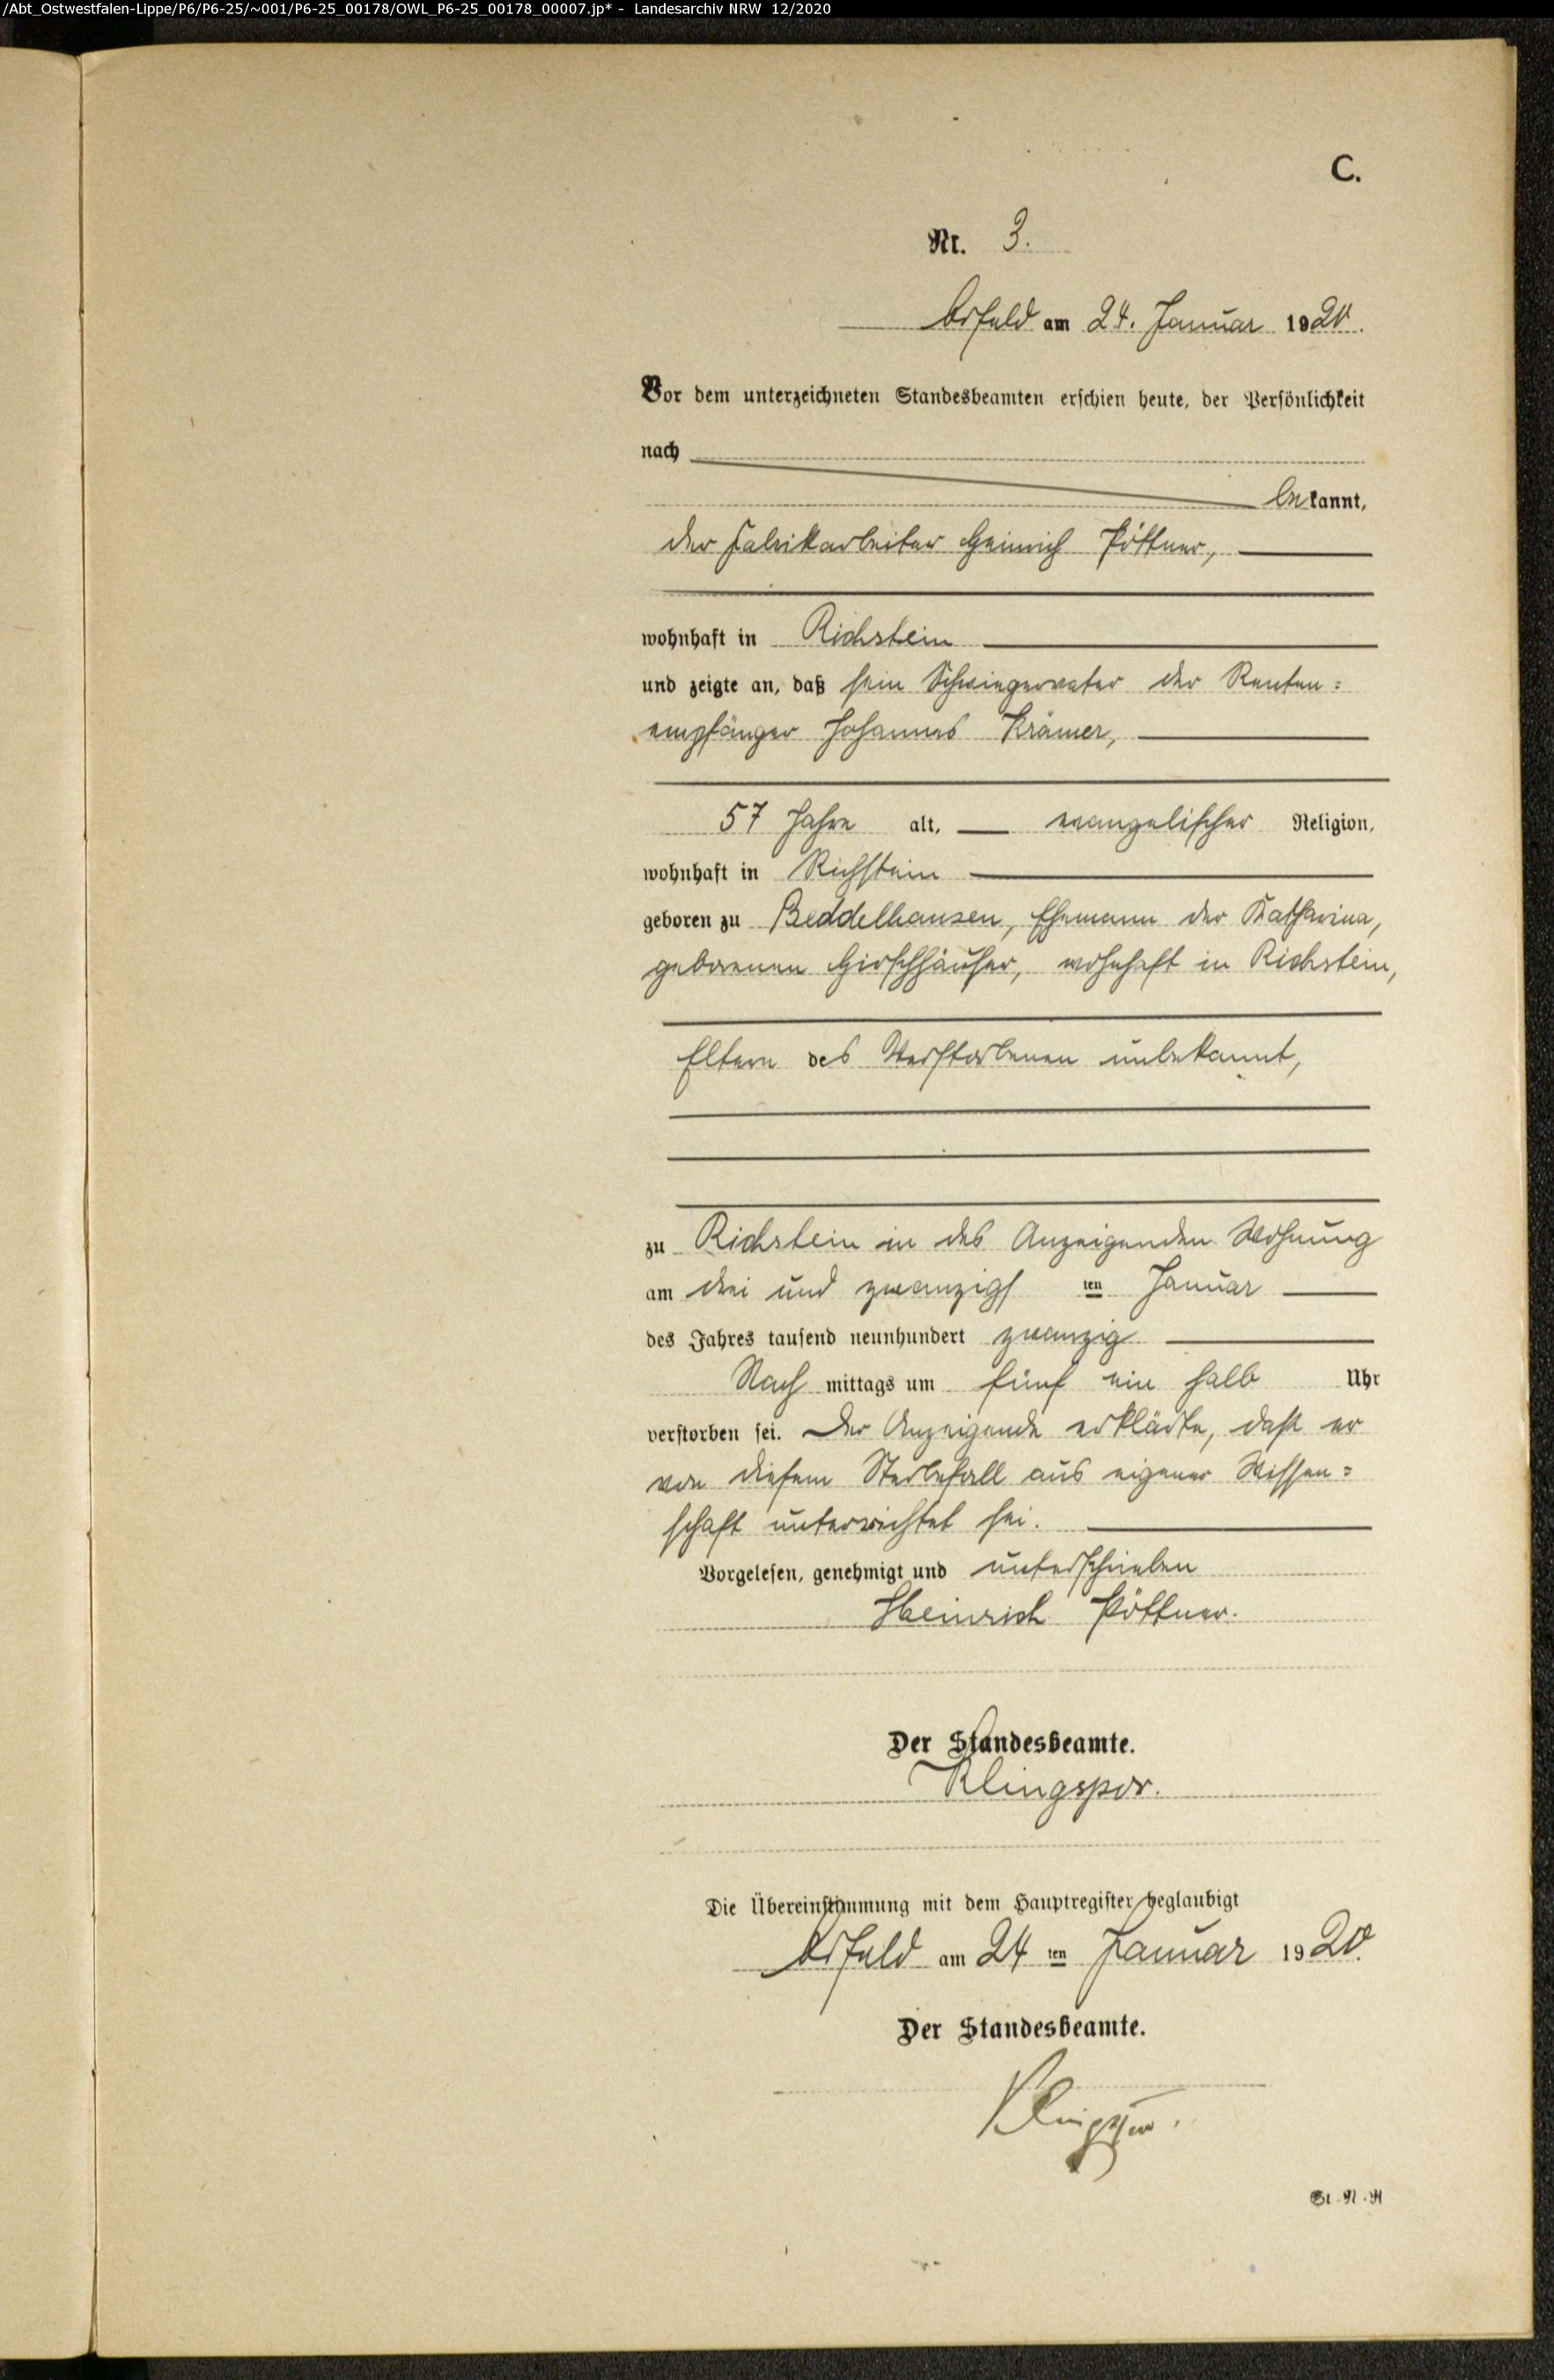 /Abt_Ostwestfalen-Lippe/P6/P6-25/~001/P6-25_00178/OWL_P6-25_00178_00007.jp* - Landesarchiv NRW 12/2020
C.
Nr. 3.
Arfeld am 24. Januar 1920.
Vor dem unterzeichneten Standesbeamten erschien heute, der Persönlichkeit
nach
bekannt,
der Fabrikarbeiter Heinrich Pöttner,
wohnhaft in Richstein
und zeigte an, daß sein Schwiegervater der Renten=
empfänger Johannes Krämer,
57 Jahre alt, evangelischer Religion,
wohnhaft in Richstein
geboren zu Beddelhausen, Ehemann der Katharina,
geborenen Hirschhäuser, wohnhaft in Richstein,
Eltern des Verstorbenen unbekannt,
zu Richstein in des Anzeigenden Wohnung
am drei und zwanzigs ten Januar
des Jahres tausend neunhundert zwanzig
Nach mittags um fünf ein halb Uhr
verstorben sei. Der Anzeigende erklärte, daß er
von diesem Sterbefall aus eigener Wissen=
schaft unterrichtet sei.
Vorgelesen, genehmigt und unterschrieben
Heinrich Pöttner.
Der Standesbeamte.
Klingspor.
Die Übereinstimmung mit dem Hauptregister beglaubigt
Arfeld am 24 ten Januar 1920.
Der Standesbeamte.
Klingspor.